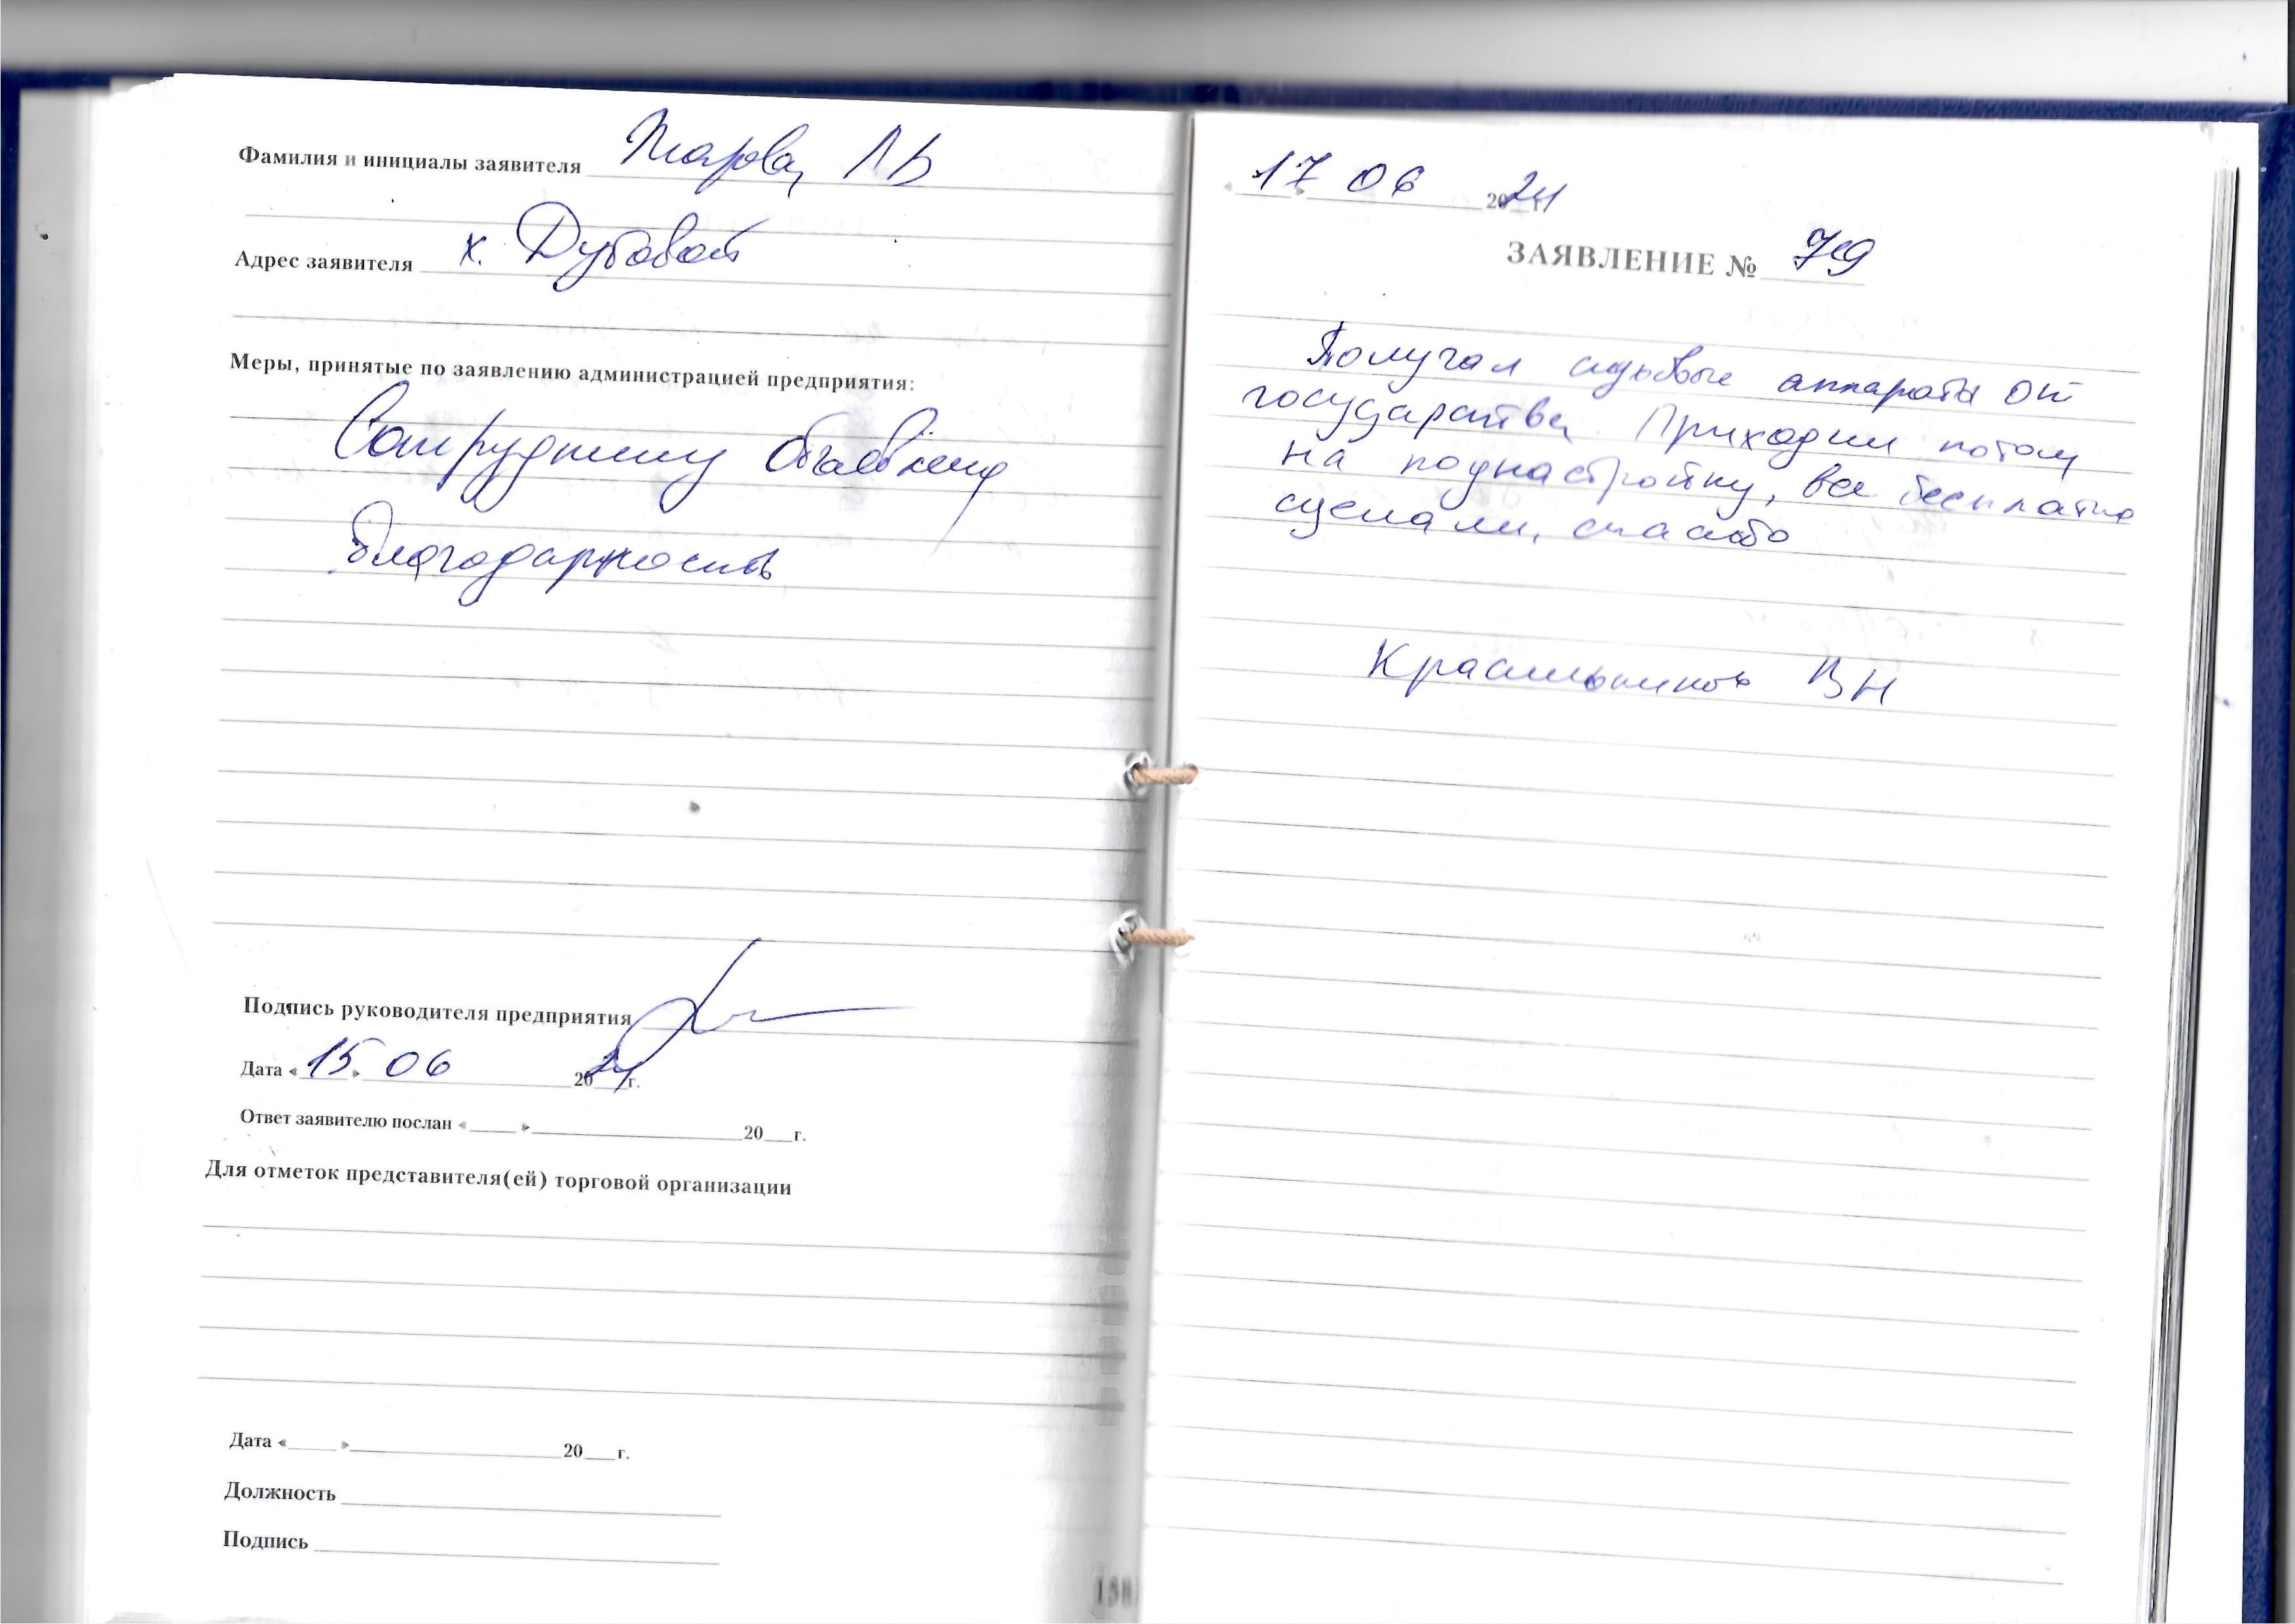 Фамилия и инициалы заявителя Жарова ЛВ
Адрес заявителя х. Дубовой
Меры, принятые по заявлению администрацией предприятия:
Сотруднику объявлена
благодарность
Подпись руководителя предприятия
Дата « 15 » 06 2024 г.
Ответ заявителю послан «____» ____ 20__г.
Для отметок представителя(ей) торговой организации
Дата «____» ____ 20__г.
Должность
Подпись
« 17 » 06 2024 г.
ЗАЯВЛЕНИЕ № 79
Получал слуховые аппараты от
государства. Приходил потом
на поднастройку, все бесплатно
сделали, спасибо
Красильников ВН